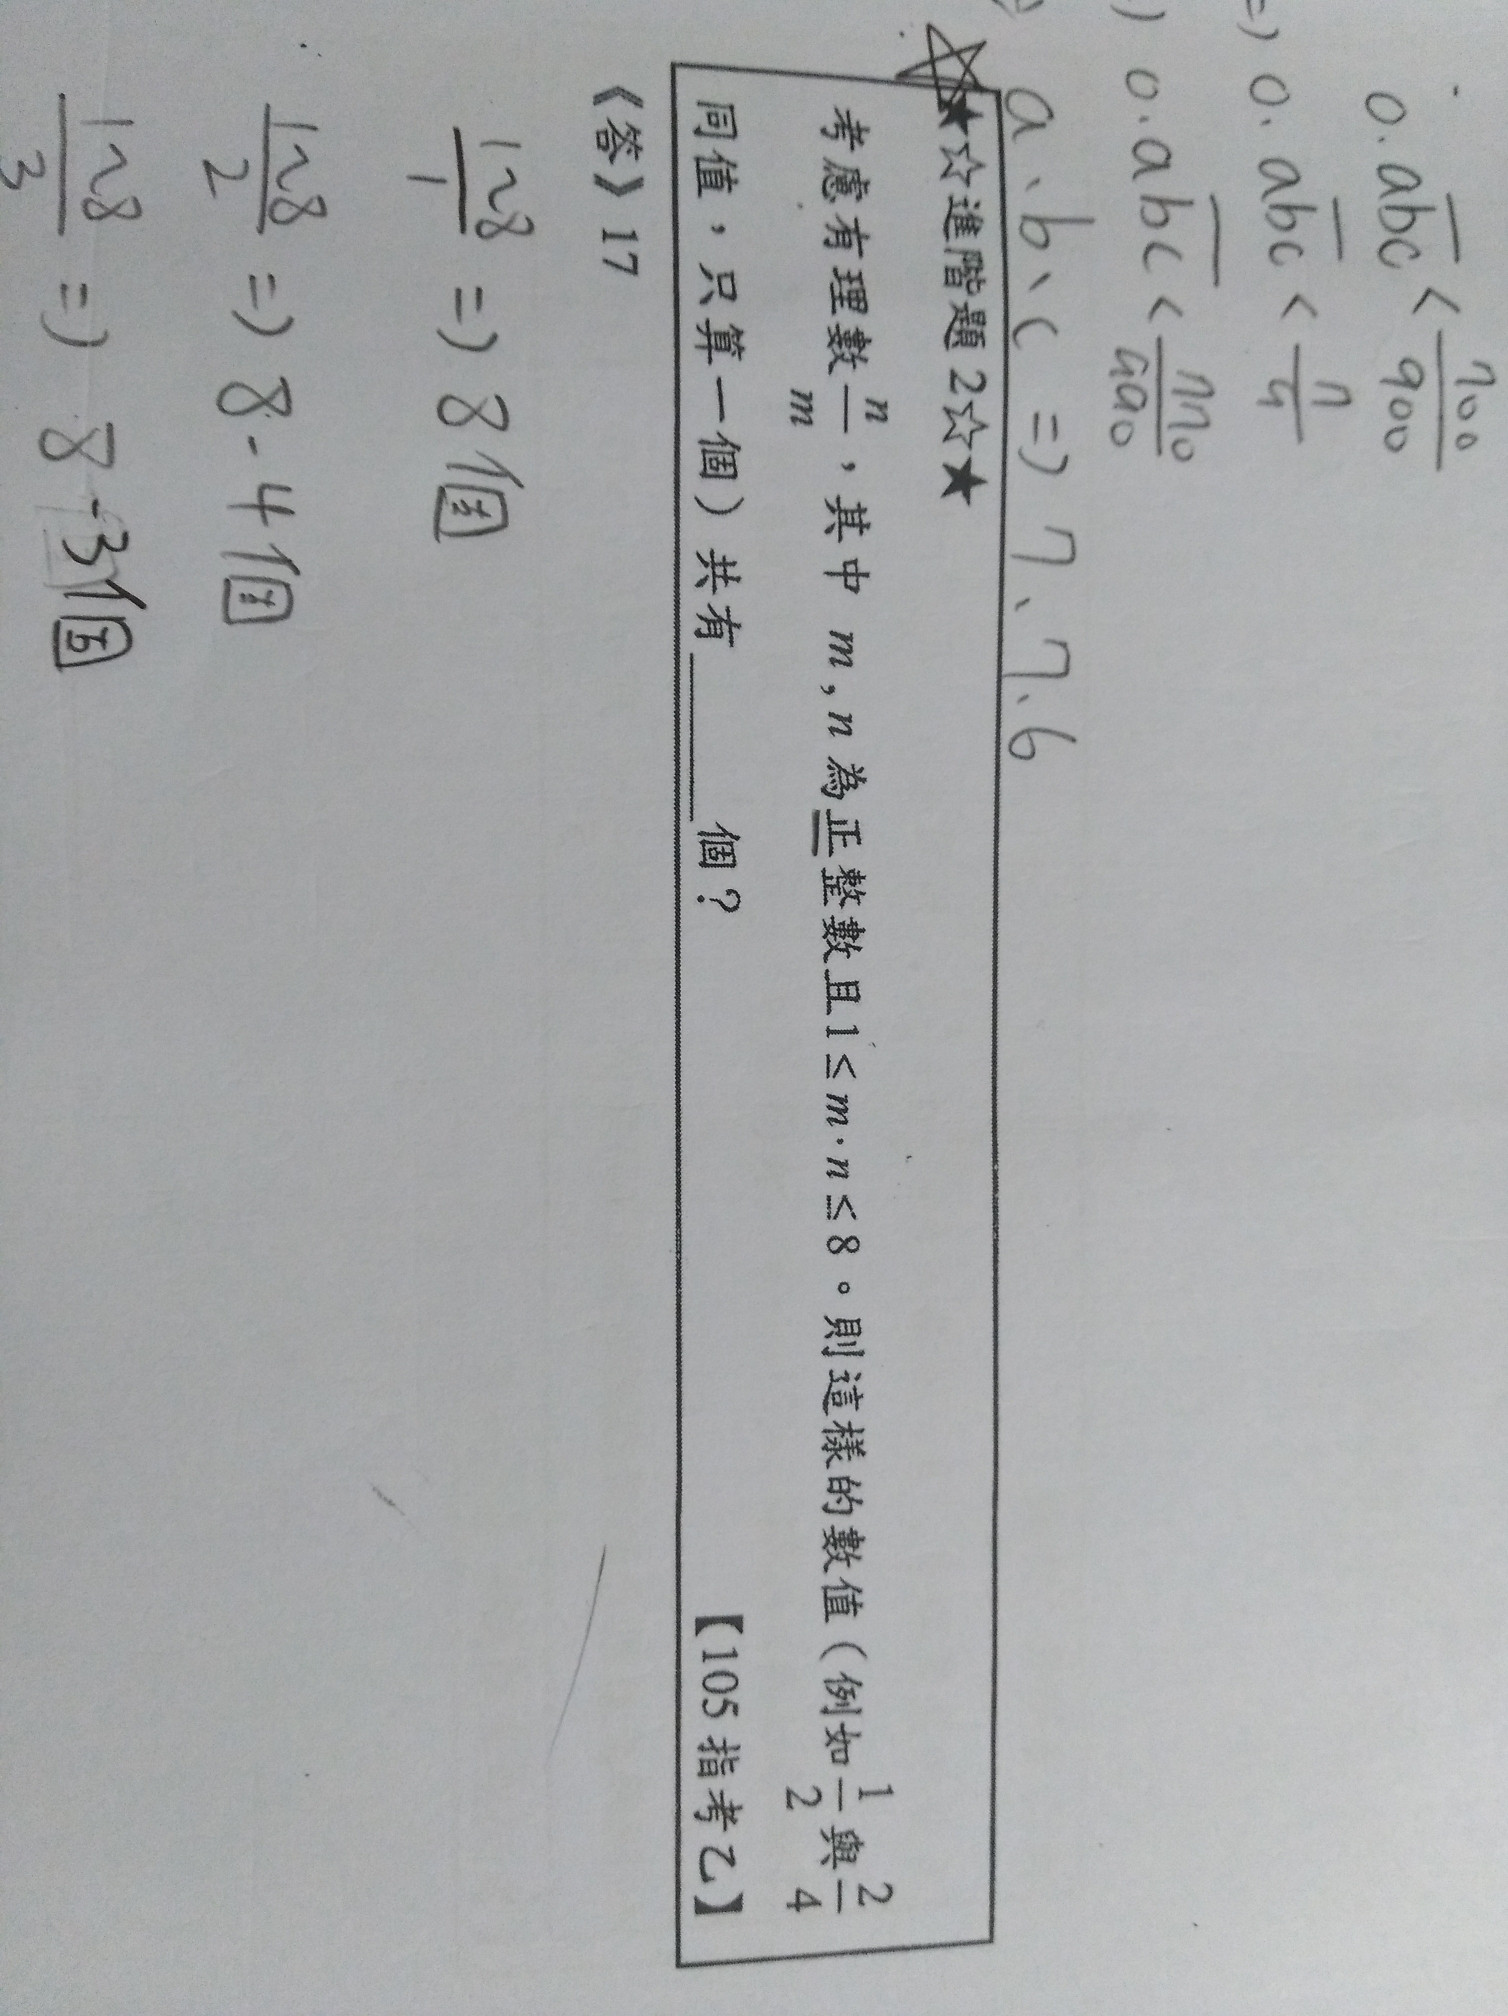 0.abc̅ < 700/900
=) 0.abc̅ < 7/9
) 0.abc̅ < 770/990
a、b、c =) 7、7、6
★☆進階題 2☆★
考慮有理數 n/m，其中 m, n 為正整數且 1 ≤ m · n ≤ 8。則這樣的數值（例如 1/2 與 2/4
同值，只算一個）共有________個？ 【105 指考乙】
《答》17
1~8/1 =) 8個
1~8/2 =) 8-4個
1~8/3 =) 8-3個